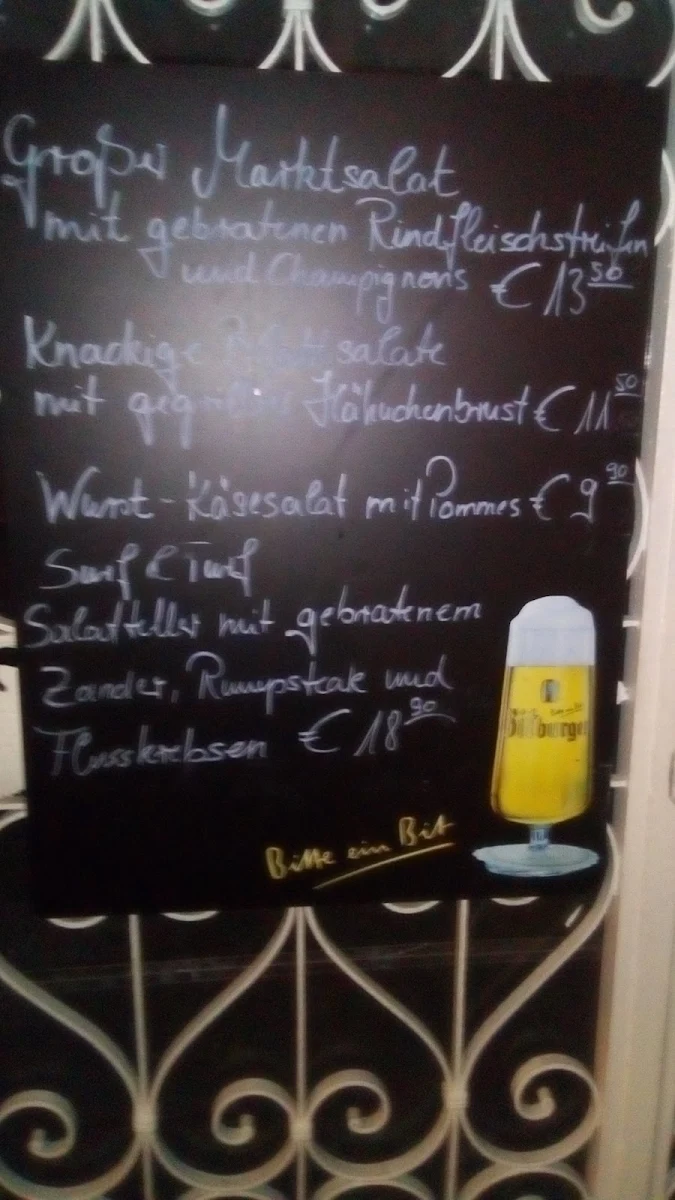 Großer Marktsalat
mit gebratenen Rindfleischstreifen
und Champignons € 13 50
Knackige Blattsalate
mit gegrillter Hähnchenbrust € 11 50
Wurst-Käsesalat mit Pommes € 9 90
Surf & Turf
Salatteller mit gebratenem
Zander, Rumpsteak und
Flusskrebsen € 18 90
Bitburger
Bitte ein Bit